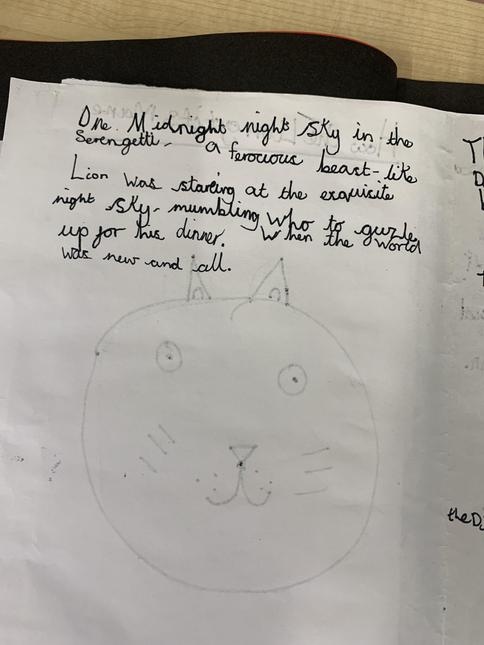 One Midnight night sky in the
Serengetti- a ferocious beast-like
Lion was stareing at the exquisite
night sky- mumbling who to guzle
up for his dinner. When the world
was new and all.
T
D
the D